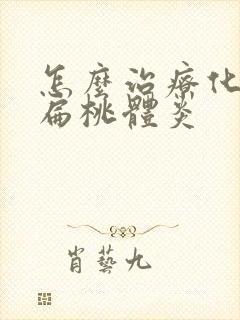 怎麼治療化
扁桃體炎
肖藝九